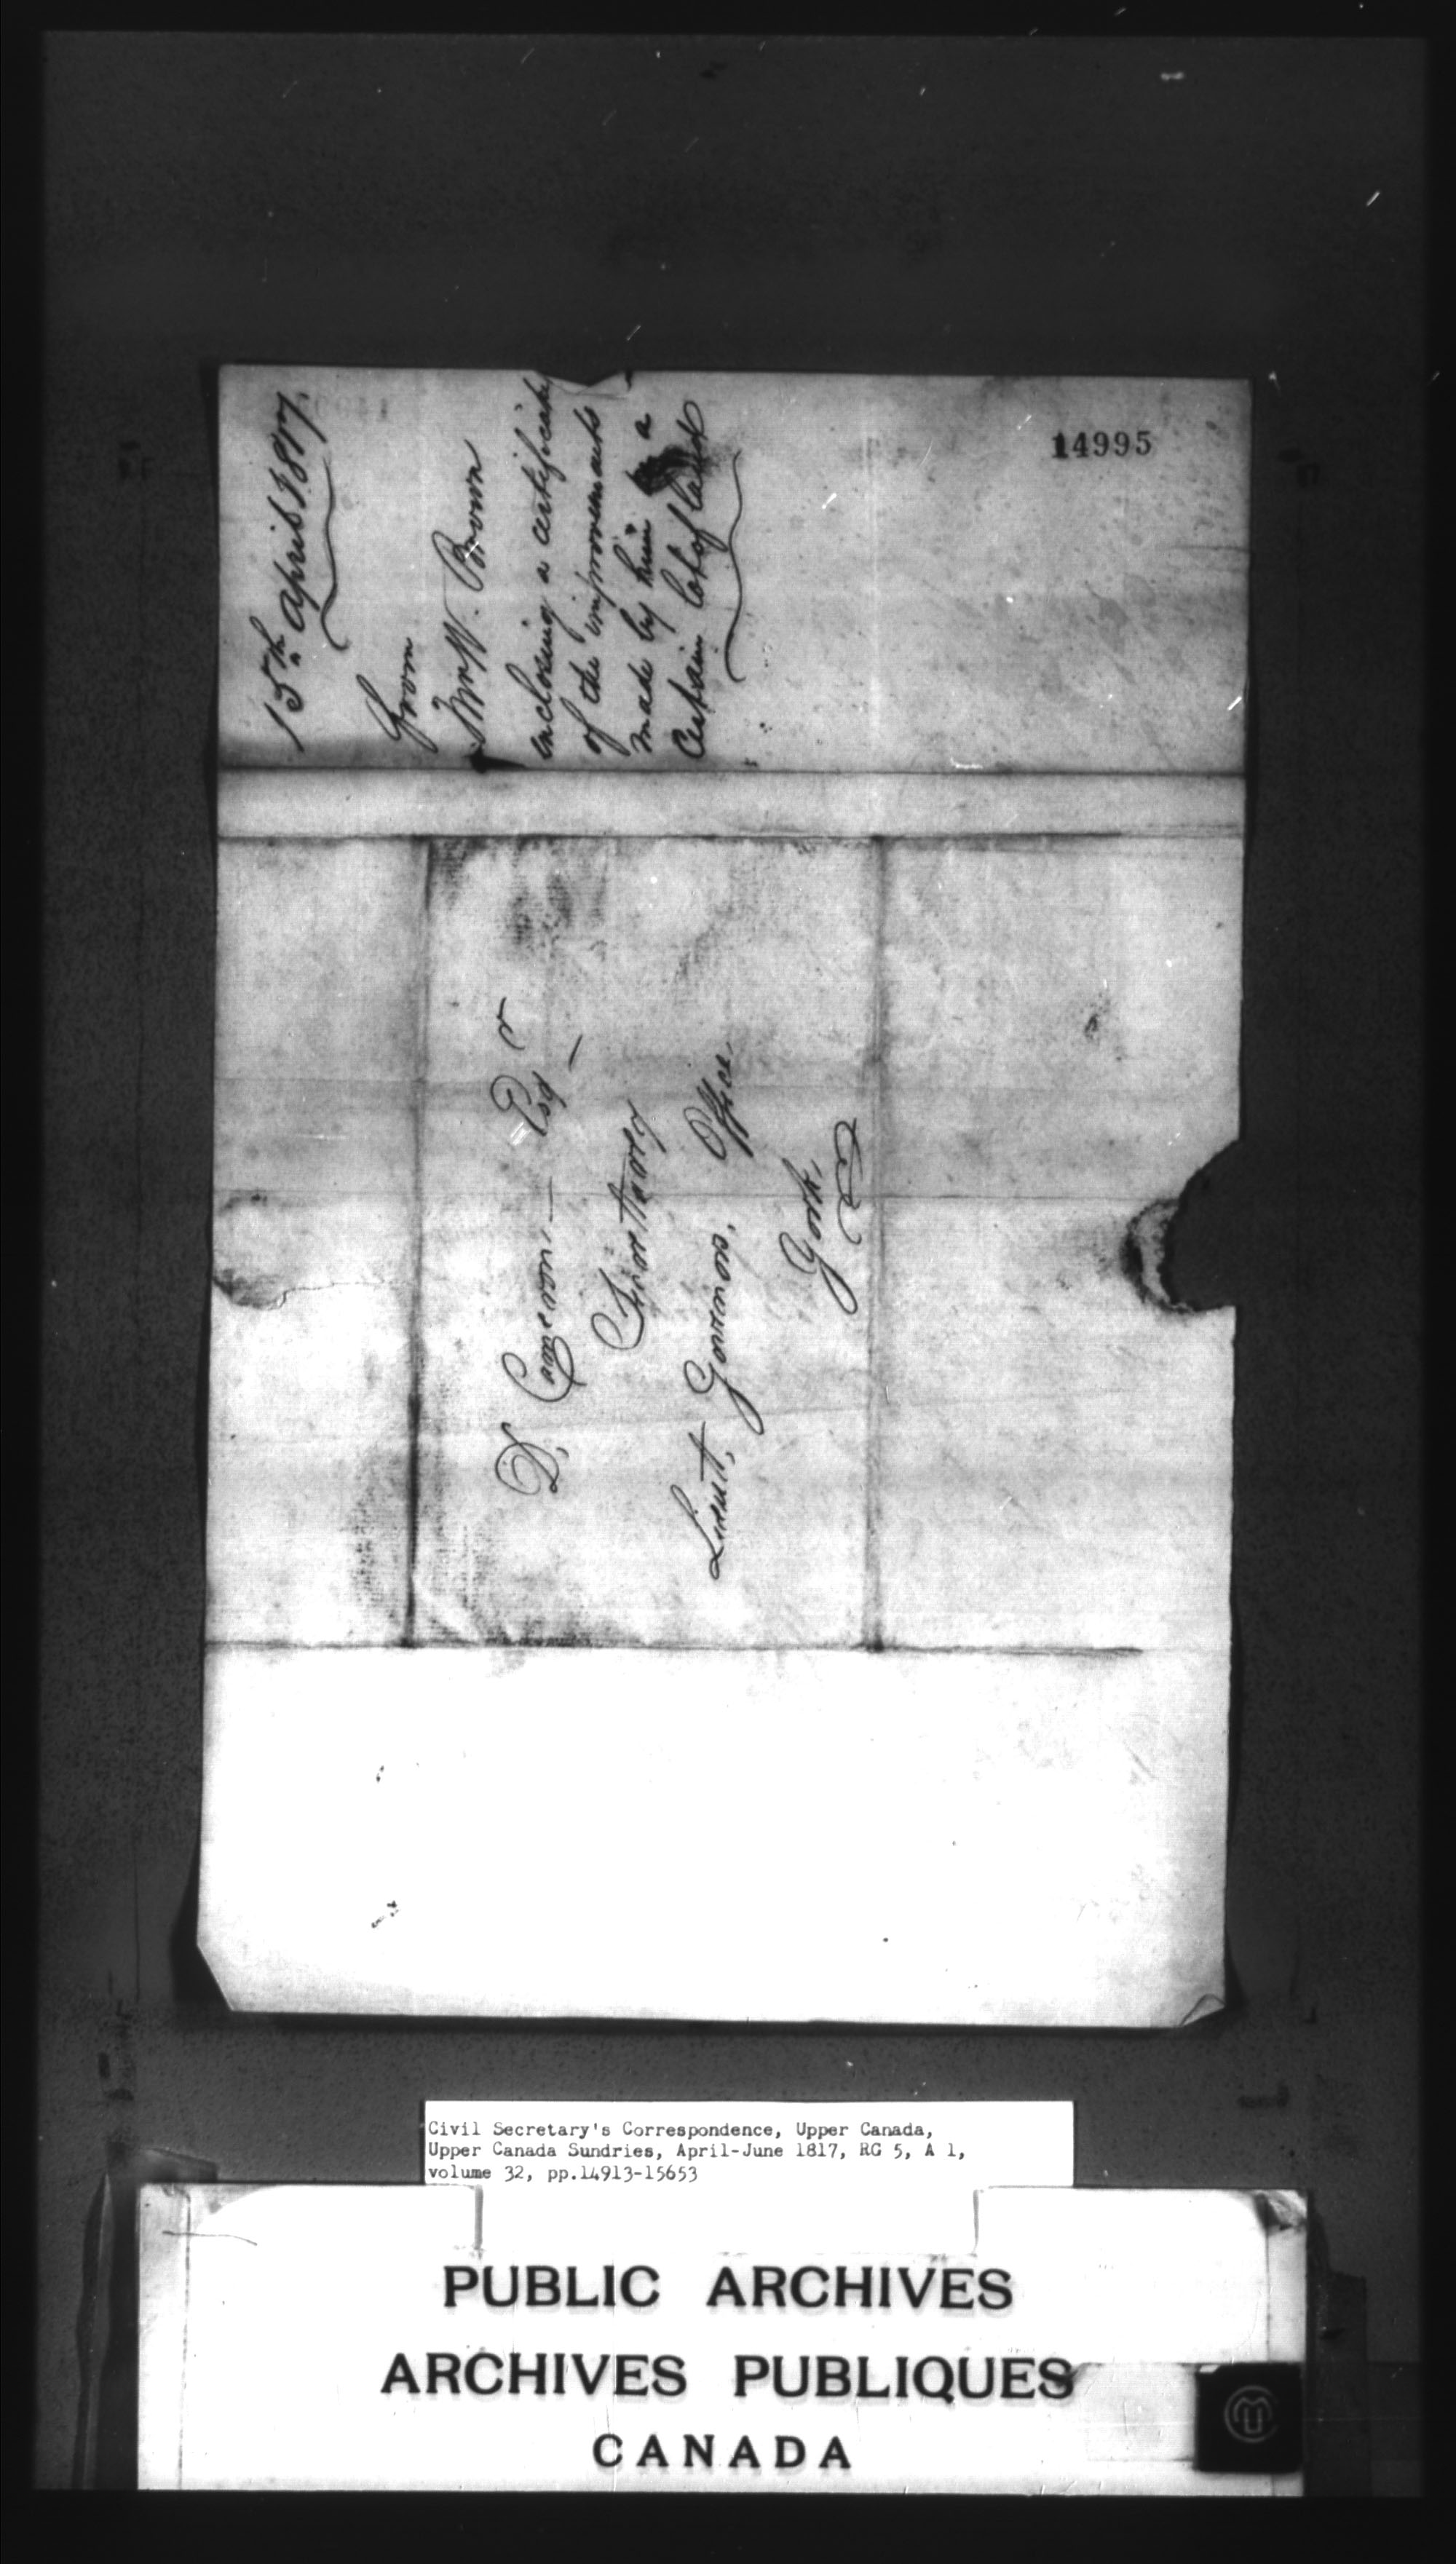 14995
15th. april 1817.
From
Mr W. Brown
enclosing a certificate
of the improvements
made by him a
Certain lot of land
D, Cameron, — Esqr
—
Lieut, Governors, Office,
York,
Civil Secretary's Correspondence, Upper Canada,
Upper Canada Sundries, April-June 1817, RG 5, A 1,
volume 32, pp.14913-15653
PUBLIC ARCHIVES
ARCHIVES PUBLIQUES
CANADA